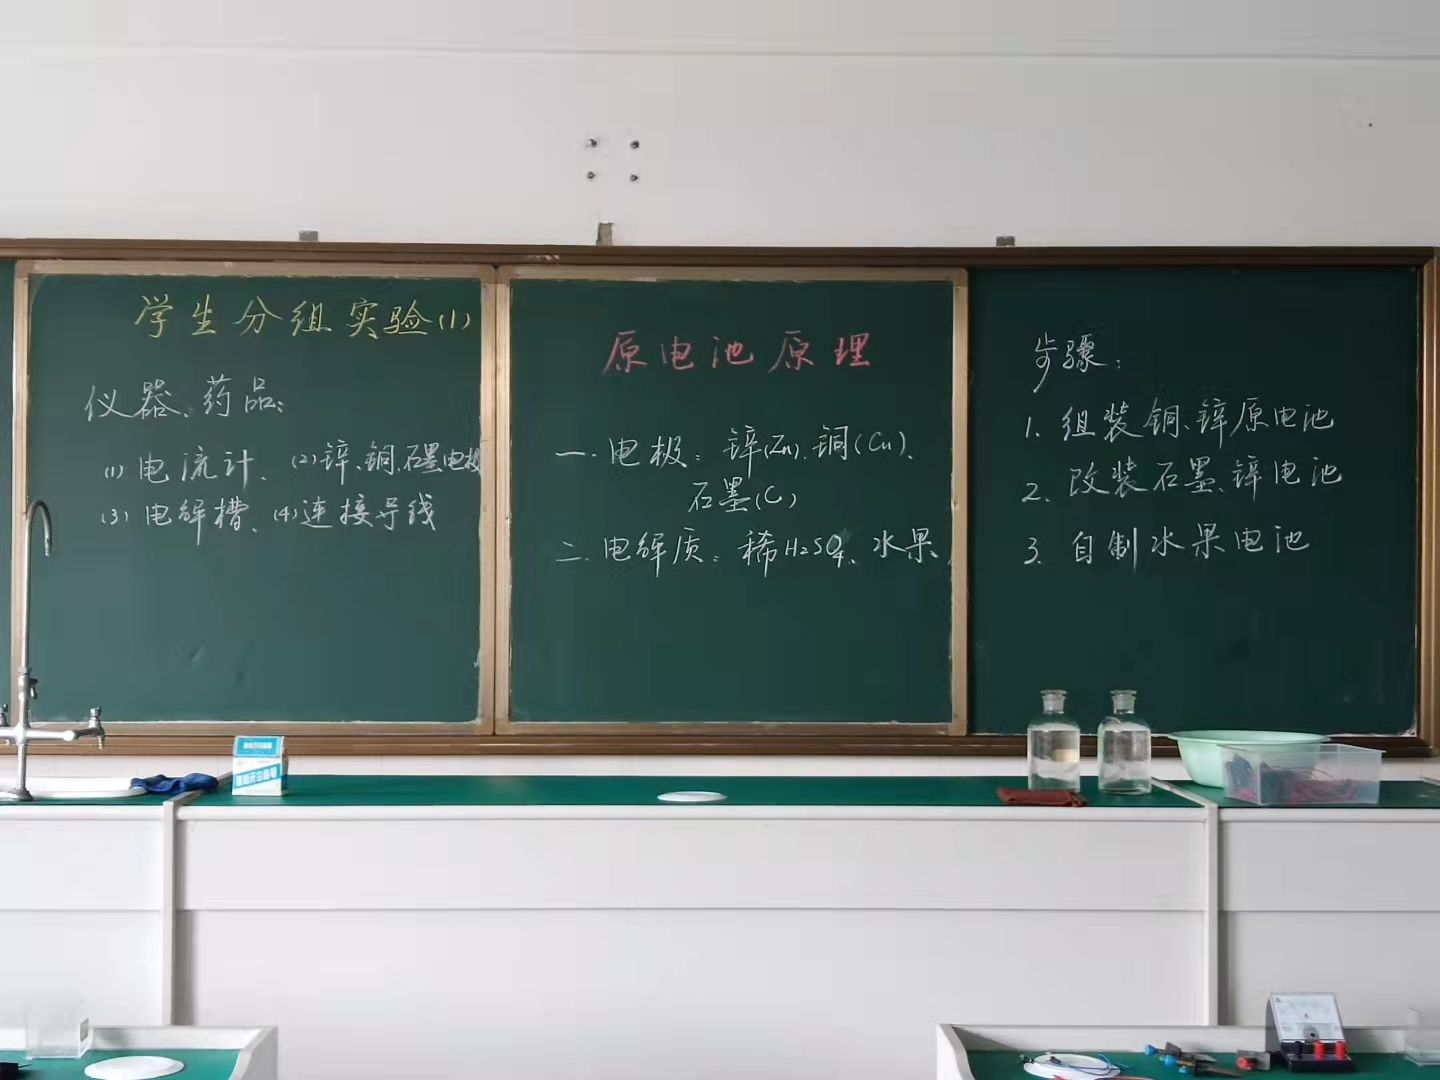 学生分组实验(1)
仪器、药品:
(1) 电流计、(2)锌、铜、石墨电极
(3) 电解槽、(4)连接导线
原电池原理
一. 电极: 锌(Zn)、铜(Cu)、
石墨(C)
二. 电解质: 稀H₂SO₄、水果
步骤:
1. 组装铜、锌原电池
2. 改装石墨、锌电池
3. 自制水果电池